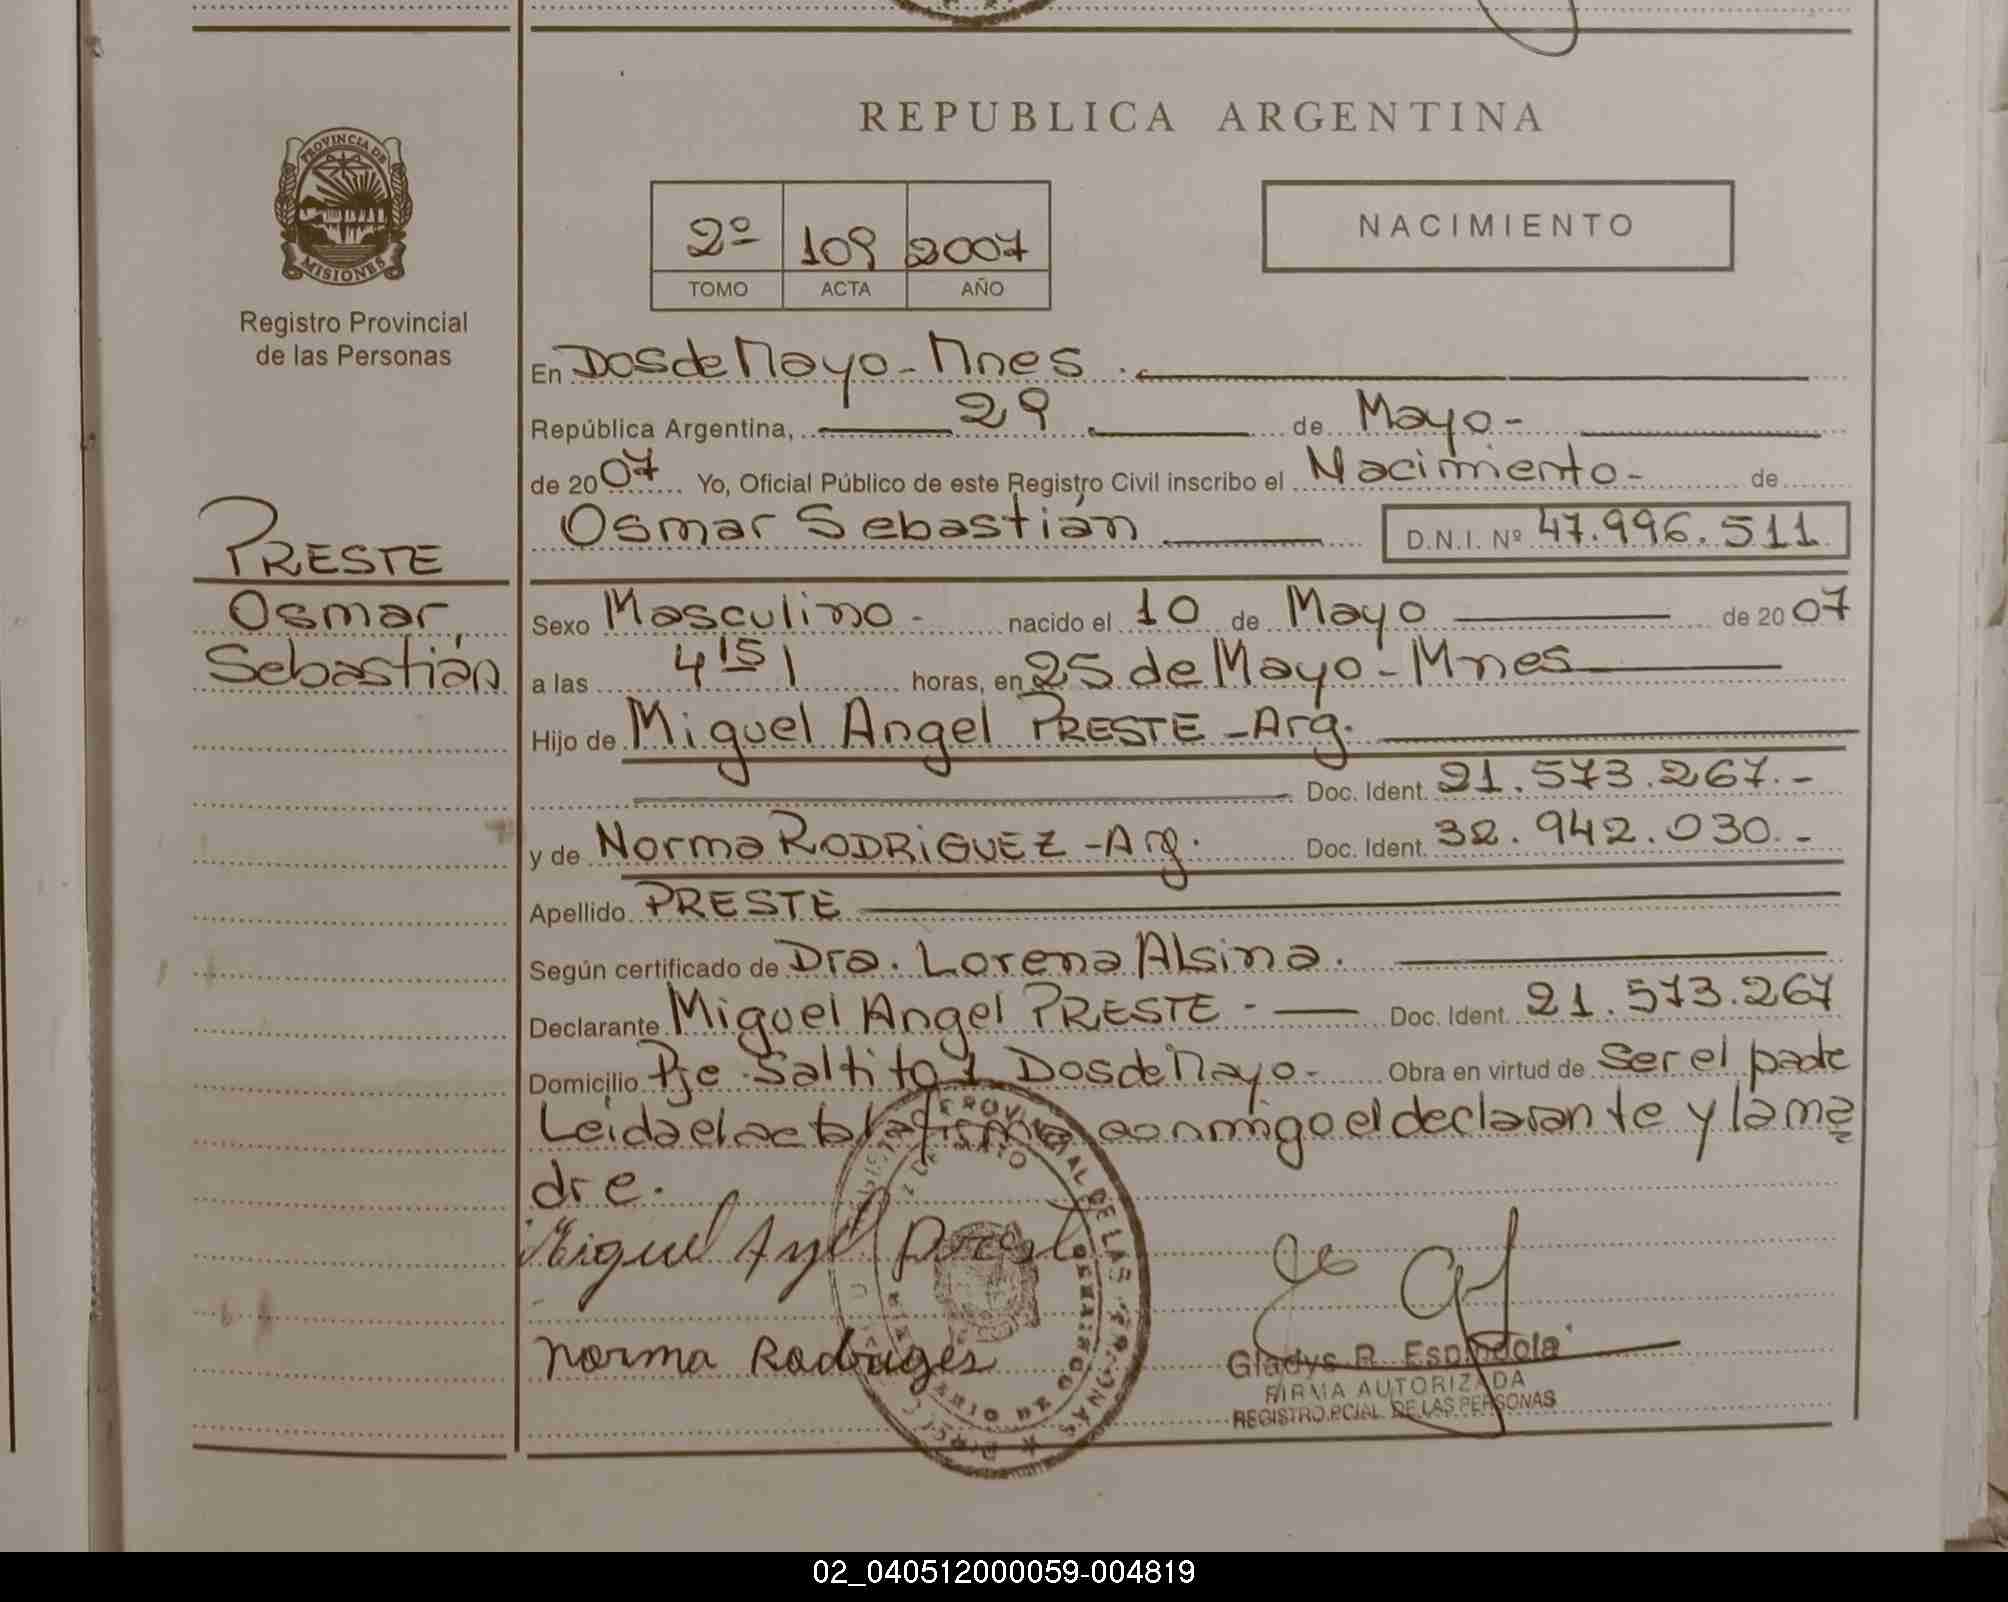 REPUBLICA ARGENTINA
PROVINCIA DE
MISIONES
Registro Provincial
de las Personas
2º 109 2007
TOMO ACTA AÑO
NACIMIENTO
En Dos de Mayo - Mnes
República Argentina, 29 de Mayo -
de 2007 Yo, Oficial Público de este Registro Civil inscribo el Nacimiento - de
Osmar Sebastián D.N.I. Nº 47.996.511
PRESTE
Osmar,
Sebastián
Sexo Masculino - nacido el 10 de Mayo de 2007
a las 4 15 horas, en 25 de Mayo - Mnes
Hijo de Miguel Angel PRESTE - Arg.
Doc. Ident. 21.573.267.-
y de Norma RODRiGUEZ - Arg. Doc. Ident. 32.942.030.-
Apellido PRESTE
Según certificado de Dra. Lorena Alsina.
Declarante Miguel Angel PRESTE - Doc. Ident. 21.573.267
Domicilio Pje Saltito 1 Dos de Mayo - Obra en virtud de ser el padre
Leida el acta la firma conmigo el declarante y la ma
dre.
Miguel
Norma
Gladys R. Espindola
FIRMA AUTORIZADA
REGISTRO PCIAL. DE LAS PERSONAS
02_040512000059-004819